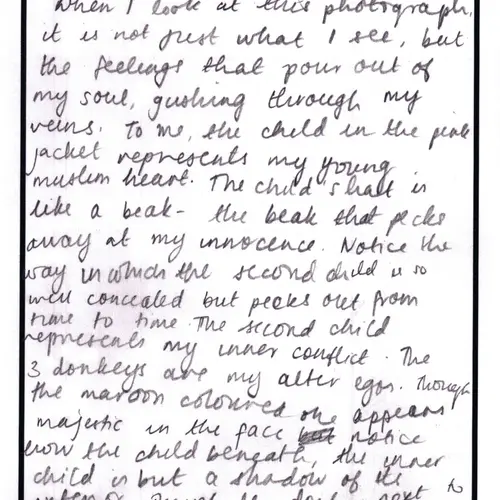 When I look at this photograph,
it is not just what I see, but
the feelings that pour out of
my soul, gushing through my
veins. To me, the child in the pink
jacket represents my young
muslim heart. The child's hat is
like a beak - the beak that pecks
away at my innocence. Notice the
way in which the second child is so
well concealed but peeks out from
time to time. The second child
represents my inner conflict. The
3 donkeys are my alter egos. Though
the maroon coloured one appears
majestic in the face notice
how the child beneath, the inner
child is but a shadow of its